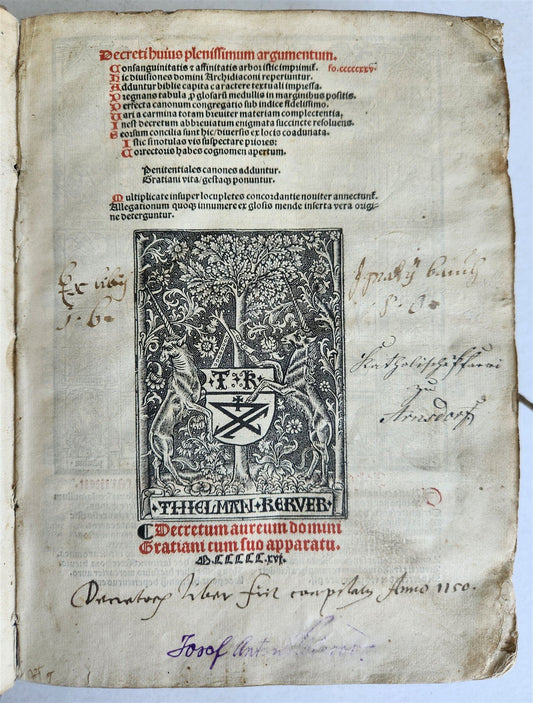 Decreti huius plenissimum argumentum.
Consanguinitatis & affinitatis arbor istic imprimit̃. fo.cccccxxv.
Hic diuisiones domini Archidiaconi reperiuntur.
Adduntur biblie capita caractere textuali impressa.
Pregnans tabula, p glosarũ medullis in marginibus positis.
Perfecta canonum congregatio sub indice fidelissimo.
Uaria carmina totam breuiter materiam complectentia,
Inest decretum abbreuiatum enigmata succincte resoluens.
Seorsum concilia sunt hic/diuersis ex locis coadunata.
Istic sinotulas vis suspectare priores:
Correctoris habes cognomen apertum.
Penitentiales canones adduntur.
Gratiani vita/gestaq; ponuntur.
Multiplicate insuper locupletes concordantie nouiter annectunt̃.
Allegationum quoq; innumere ex glosis mende inserta vera origi-
ne deterguntur.
Katholische Pfarrei
zu
Arnsdorf
T K
THIELMAN KERVER
Decretum aureum domini
Gratiani cum suo apparatu.
M.CCCCC.xvi.
Decretorum Liber fuit compilatus Anno 1150.
Josef Anton